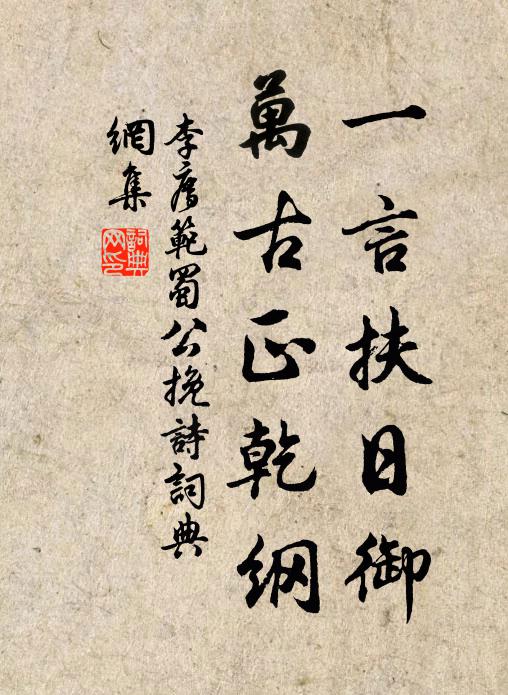 一言扶日御
萬古正乾綱
李廌範蜀公挽詩詞典
網集
詞典
网印